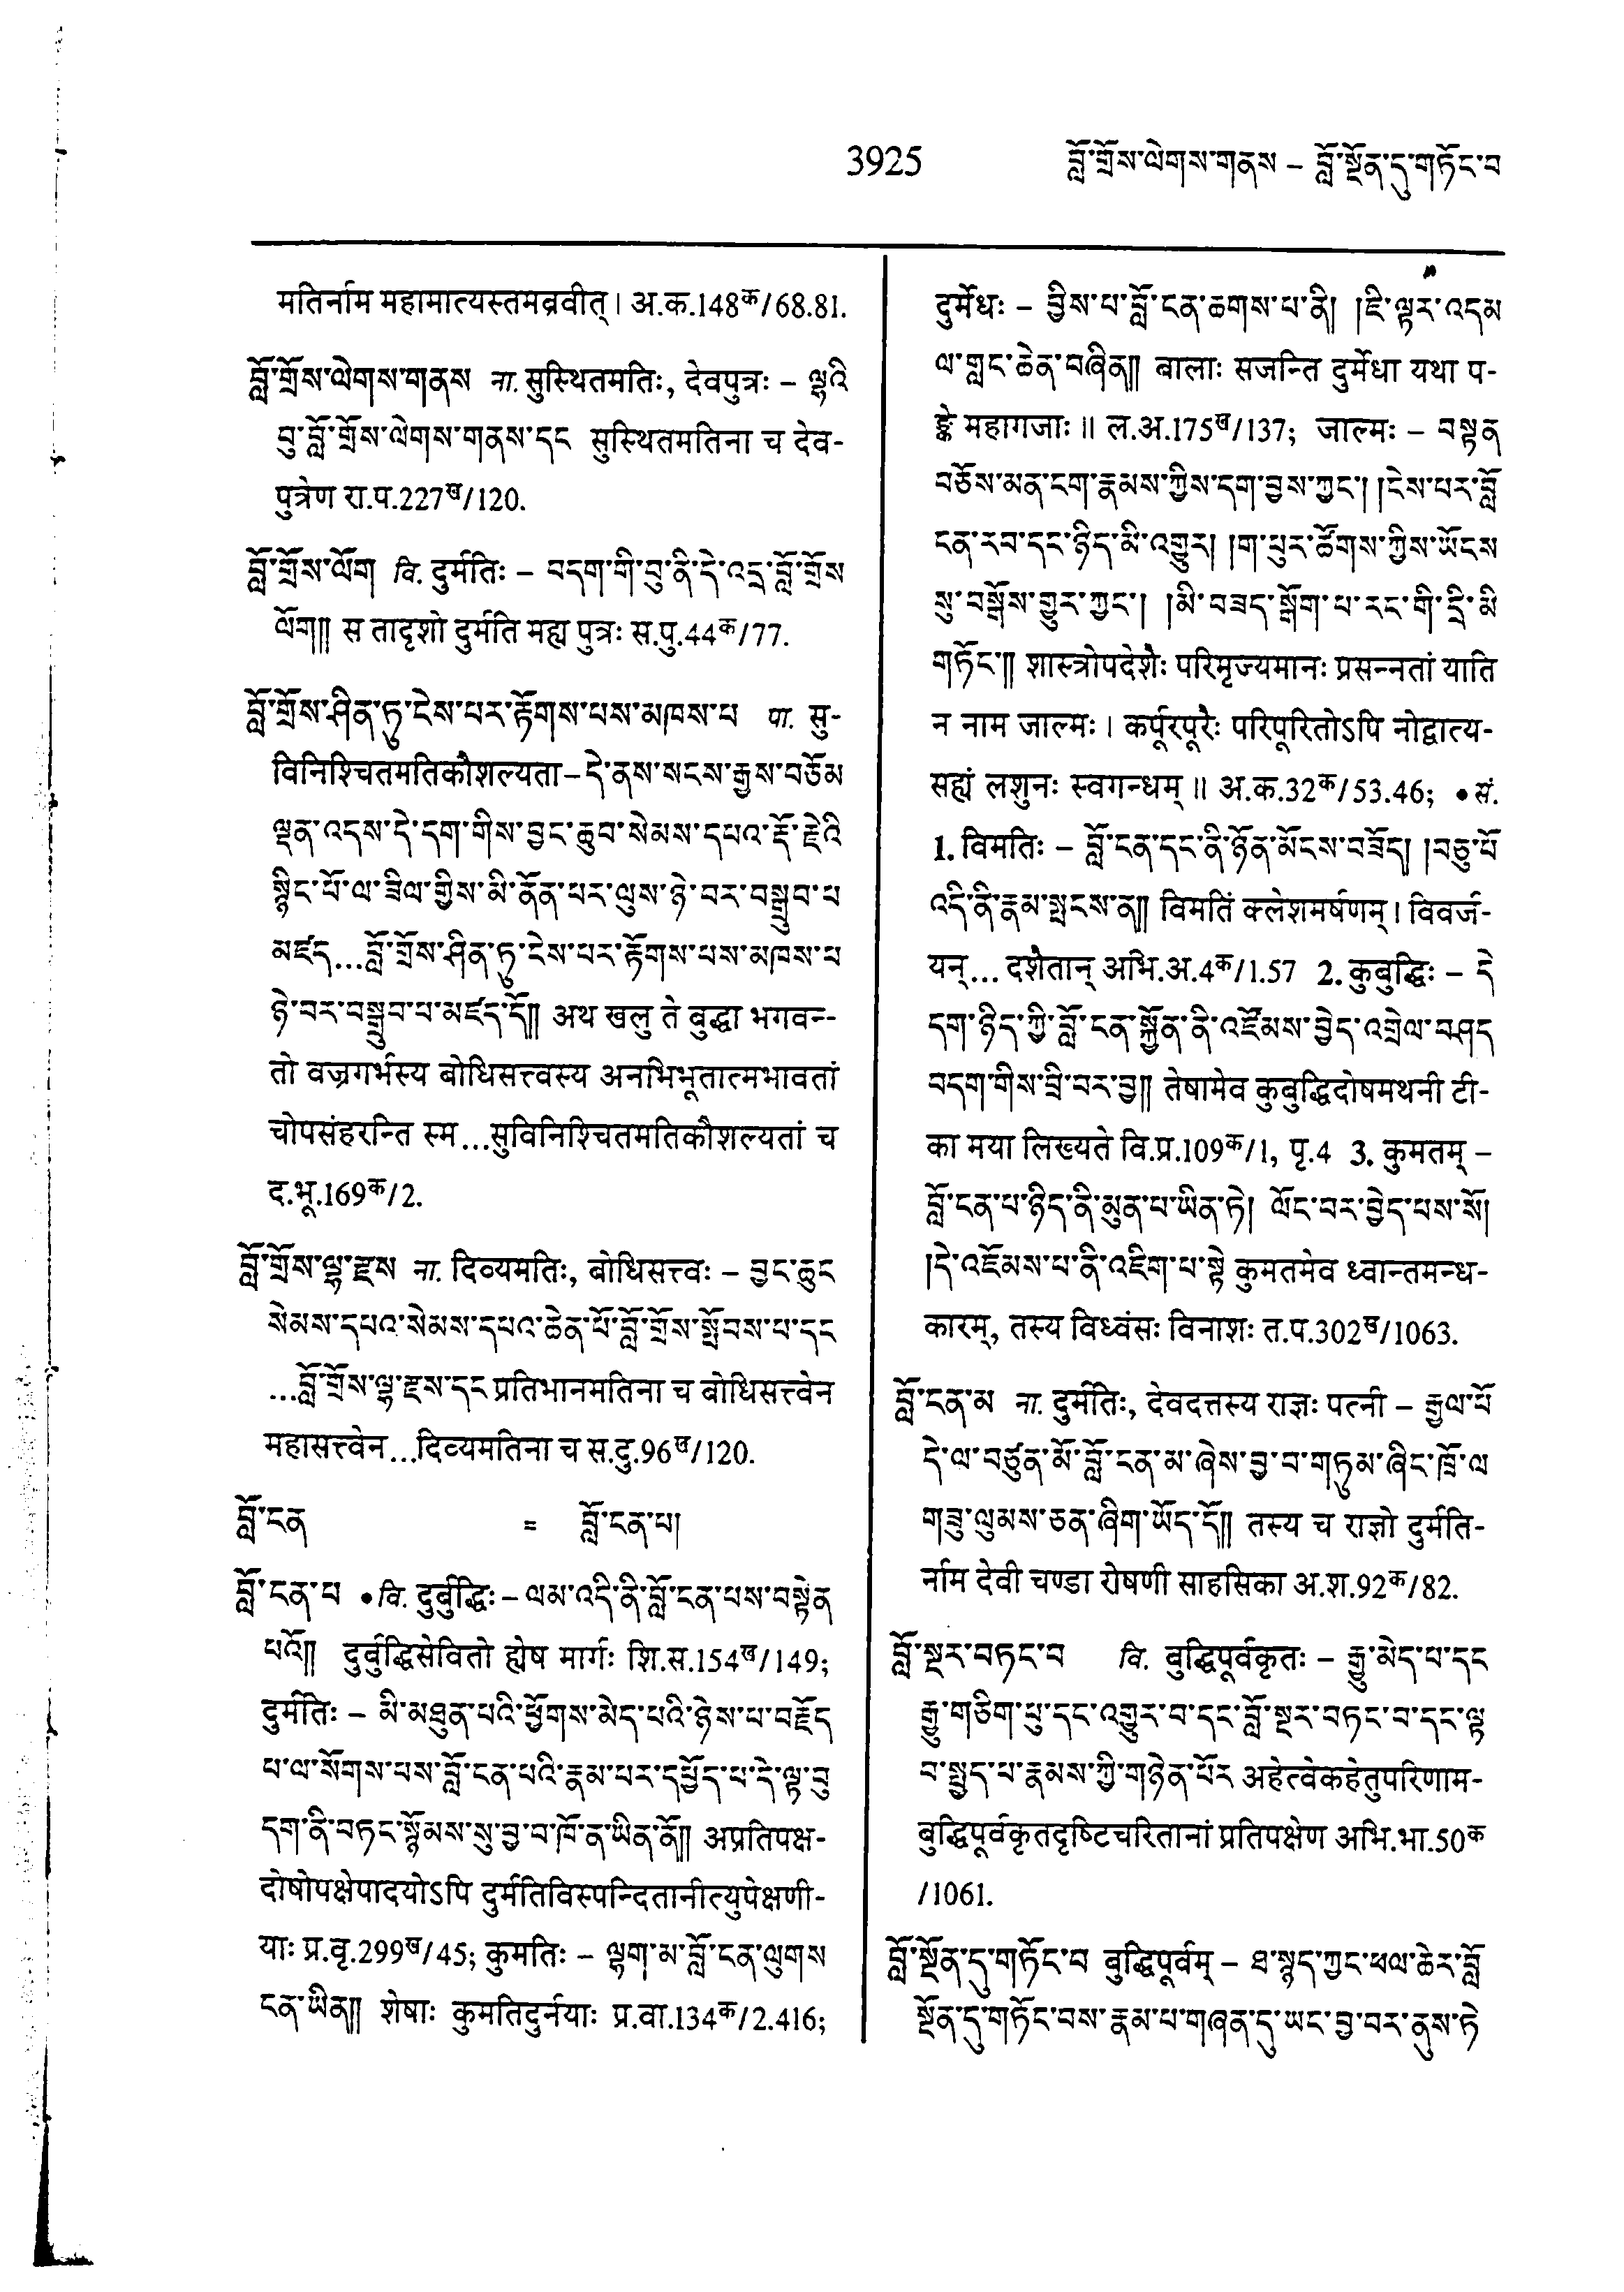 3925
བློ་གྲོས་ལེགས་གནས – བློ་སྔོན་དུ་གཏོང་བ
मतिर्नाम महामात्यस्तमब्रवीत् । अ.क.148क/68.81.
བློ་གྲོས་ལེགས་གནས ना. सुस्थितमतिः, देवपुत्रः – ལྷའི
བུ་བློ་གྲོས་ལེགས་གནས་དང सुस्थितमतिना च देव-
पुत्रेण रा.प.227ख/120.
བློ་གྲོས་ལོག वि. दुर्मतिः – བདག་གི་བུ་ནི་དེ་འདྲ་བློ་གྲོས
ལོག།། स तादृशो दुर्मति मह्य पुत्रः स.पु.44क/77.
བློ་གྲོས་ཤིན་ཏུ་ངེས་པར་རྟོགས་པས་མཁས་པ पा. सु-
विनिश्चितमतिकौशल्यता – དེ་ནས་སངས་རྒྱས་བཅོམ
ལྡན་འདས་དེ་དག་གིས་བྱང་ཆུབ་སེམས་དཔའ་རྡོ་རྗེའི
སྙིང་པོ་ལ་ཟིལ་གྱིས་མི་ནོན་པར་ལུས་ཉེ་བར་བསྒྲུབ་པ
མཛད...བློ་གྲོས་ཤིན་ཏུ་ངེས་པར་རྟོགས་པས་མཁས་པ
ཉེ་བར་བསྒྲུབ་པ་མཛད་དོ།། अथ खलु ते बुद्धा भगवन्-
तो वज्रगर्भस्य बोधिसत्त्वस्य अनभिभूतात्मभावतां
चोपसंहरन्ति स्म...सुविनिश्चितमतिकौशल्यतां च
द.भू.169क/2.
བློ་གྲོས་ལྷ་རྫས ना. दिव्यमतिः, बोधिसत्त्वः – བྱང་ཆུང
སེམས་དཔའ་སེམས་དཔའ་ཆེན་པོ་བློ་གྲོས་སྤོབས་པ་དང
...བློ་གྲོས་ལྷ་རྫས་དང प्रतिभानमतिना च बोधिसत्त्वेन
महासत्त्वेन...दिव्यमतिना च स.दु.96ख/120.
བློ་ངན = བློ་ངན་པ།
བློ་ངན་པ • वि. दुर्बुद्धिः – ལམ་འདི་ནི་བློ་ངན་པས་བསྟེན
པའོ།། दुर्बुद्धिसेवितो ह्येष मार्गः शि.स.154ख/149;
दुर्मतिः – མི་མཐུན་པའི་ཕྱོགས་མེད་པའི་ཉེས་པ་བརྗོད
པ་ལ་སོགས་པས་བློ་ངན་པའི་རྣམ་པར་དཔྱོད་པ་དེ་ལྟ་བུ
དག་ནི་བཏང་སྙོམས་སུ་བྱ་བ་ཁོ་ན་ཡིན་ནོ།། अप्रतिपक्ष-
दोषोपक्षेपादयोऽपि दुर्मतिविस्पन्दितानीत्युपेक्षणी-
याः प्र.वृ.299ख/45; कुमतिः – ལྷག་མ་བློ་ངན་ལུགས
ངན་ཡིན།། शेषाः कुमतिदुर्नयाः प्र.वा.134क/2.416;
दुर्मेधः – བྱིས་པ་བློ་ངན་ཆགས་པ་ནི། །ཇི་ལྟར་འདམ
ལ་གླང་ཆེན་བཞིན།། बालाः सजन्ति दुर्मेधा यथा प-
ङ्के महागजाः ॥ ल.अ.175ख/137; जाल्मः – བསྟན
བཅོས་མན་ངག་རྣམས་ཀྱིས་དག་བྱས་ཀྱང་། །ངེས་པར་བློ
ངན་རབ་དང་ཉིད་མི་འགྱུར། །ག་པུར་ཚོགས་ཀྱིས་ཡོངས
སུ་བསྒོས་གྱུར་ཀྱང་། །མི་བཟད་སྒོག་པ་རང་གི་དྲི་མི
གཏོང་།། शास्त्रोपदेशैः परिमृज्यमानः प्रसन्नतां याति
न नाम जाल्मः । कर्पूरपूरैः परिपूरितोऽपि नोद्वात्य-
सह्यं लशुनः स्वगन्धम् ॥ अ.क.32क/53.46; • सं.
1. विमतिः – བློ་ངན་དང་ནི་ཉོན་མོངས་བཟོད། །བཅུ་པོ
འདི་ནི་རྣམ་སྤངས་ན།། विमतिं क्लेशमर्षणम् । विवर्ज-
यन्... दशैतान् अभि.अ.4क/1.57 2. कुबुद्धिः – དེ
དག་ཉིད་ཀྱི་བློ་ངན་སྐྱོན་ནི་འཇོམས་བྱེད་འགྲེལ་བཤད
བདག་གིས་བྲི་བར་བྱ།། तेषामेव कुबुद्धिदोषमथनी टी-
का मया लिख्यते वि.प्र.109क/1, पृ.4 3. कुमतम् –
བློ་ངན་པ་ཉིད་ནི་མུན་པ་ཡིན་ཏེ། ལོང་བར་བྱེད་པས་སོ།
།དེ་འཇོམས་པ་ནི་འཇིག་པ་སྟེ कुमतमेव ध्वान्तमन्ध-
कारम्, तस्य विध्वंसः विनाशः त.प.302ख/1063.
བློ་ངན་མ ना. दुर्मतिः, देवदत्तस्य राज्ञः पत्नी – རྒྱལ་པོ
དེ་ལ་བཙུན་མོ་བློ་ངན་མ་ཞེས་བྱ་བ་གཏུམ་ཞིང་ཁྲོ་ལ
གཟུ་ལུམས་ཅན་ཞིག་ཡོད་དོ།། तस्य च राज्ञो दुर्मति-
र्नाम देवी चण्डा रोषणी साहसिका अ.श.92क/82.
བློ་སྔར་བཏང་བ वि. बुद्धिपूर्वकृतः – རྒྱུ་མེད་པ་དང
རྒྱུ་གཅིག་པུ་དང་འགྱུར་བ་དང་བློ་སྔར་བཏང་བ་དང་ལྟ
བ་སྤྱད་པ་རྣམས་ཀྱི་གཉེན་པོར अहेत्वेकहेतुपरिणाम-
बुद्धिपूर्वकृतदृष्टिचरितानां प्रतिपक्षेण अभि.भा.50क
/1061.
བློ་སྔོན་དུ་གཏོང་བ बुद्धिपूर्वम् – ཐ་སྙད་ཀྱང་ཕལ་ཆེར་བློ
སྔོན་དུ་གཏོང་བས་རྣམ་པ་གཞན་དུ་ཡང་བྱ་བར་ནུས་ཏེ